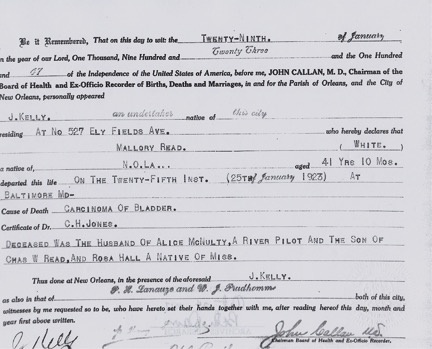 Be it Remembered, That on this day to wit: the TWENTY-NINTH. of January
in the year of our Lord, One Thousand, Nine Hundred and Twenty Three and the One Hundred
and 47 of the Independence of the United States of America, before me, JOHN CALLAN, M. D., Chairman of the
Board of Health and Ex-Officio Recorder of Births, Deaths and Marriages, in and for the Parish of Orleans, and the City of
New Orleans, personally appeared
J.KELLY. an undertaker native of this city
residing AT NO 527 ELY FIELDS AVE. who hereby declares that
MALLORY READ. ( WHITE. )
a native of, N.O.LA... aged 41 YRS 10 MOS.
departed this life ON THE TWENTY-FIFTH INST. (25TH of January 1923) AT
BALTIMORE MD-
Cause of Death CARCINOMA OF BLADDER.
Certificate of Dr. C.H.JONES.
DECEASED WAS THE HUSBAND OF ALICE MCNULTY, A RIVER PILOT AND THE SON OF
CHAS W READ, AND ROSA HALL A NATIVE OF MISS.
Thus done at New Orleans, in the presence of the aforesaid J.KELLY.
as also in that of P. H. Lanauze and W. J. Prudhomme both of this city,
witnesses by me requested so to be, who have hereto set their hands together with me, after reading hereof this day, month and
year first above written.
J Kelly John Callan MD
Chairman Board of Health and Ex-Officio Recorder.